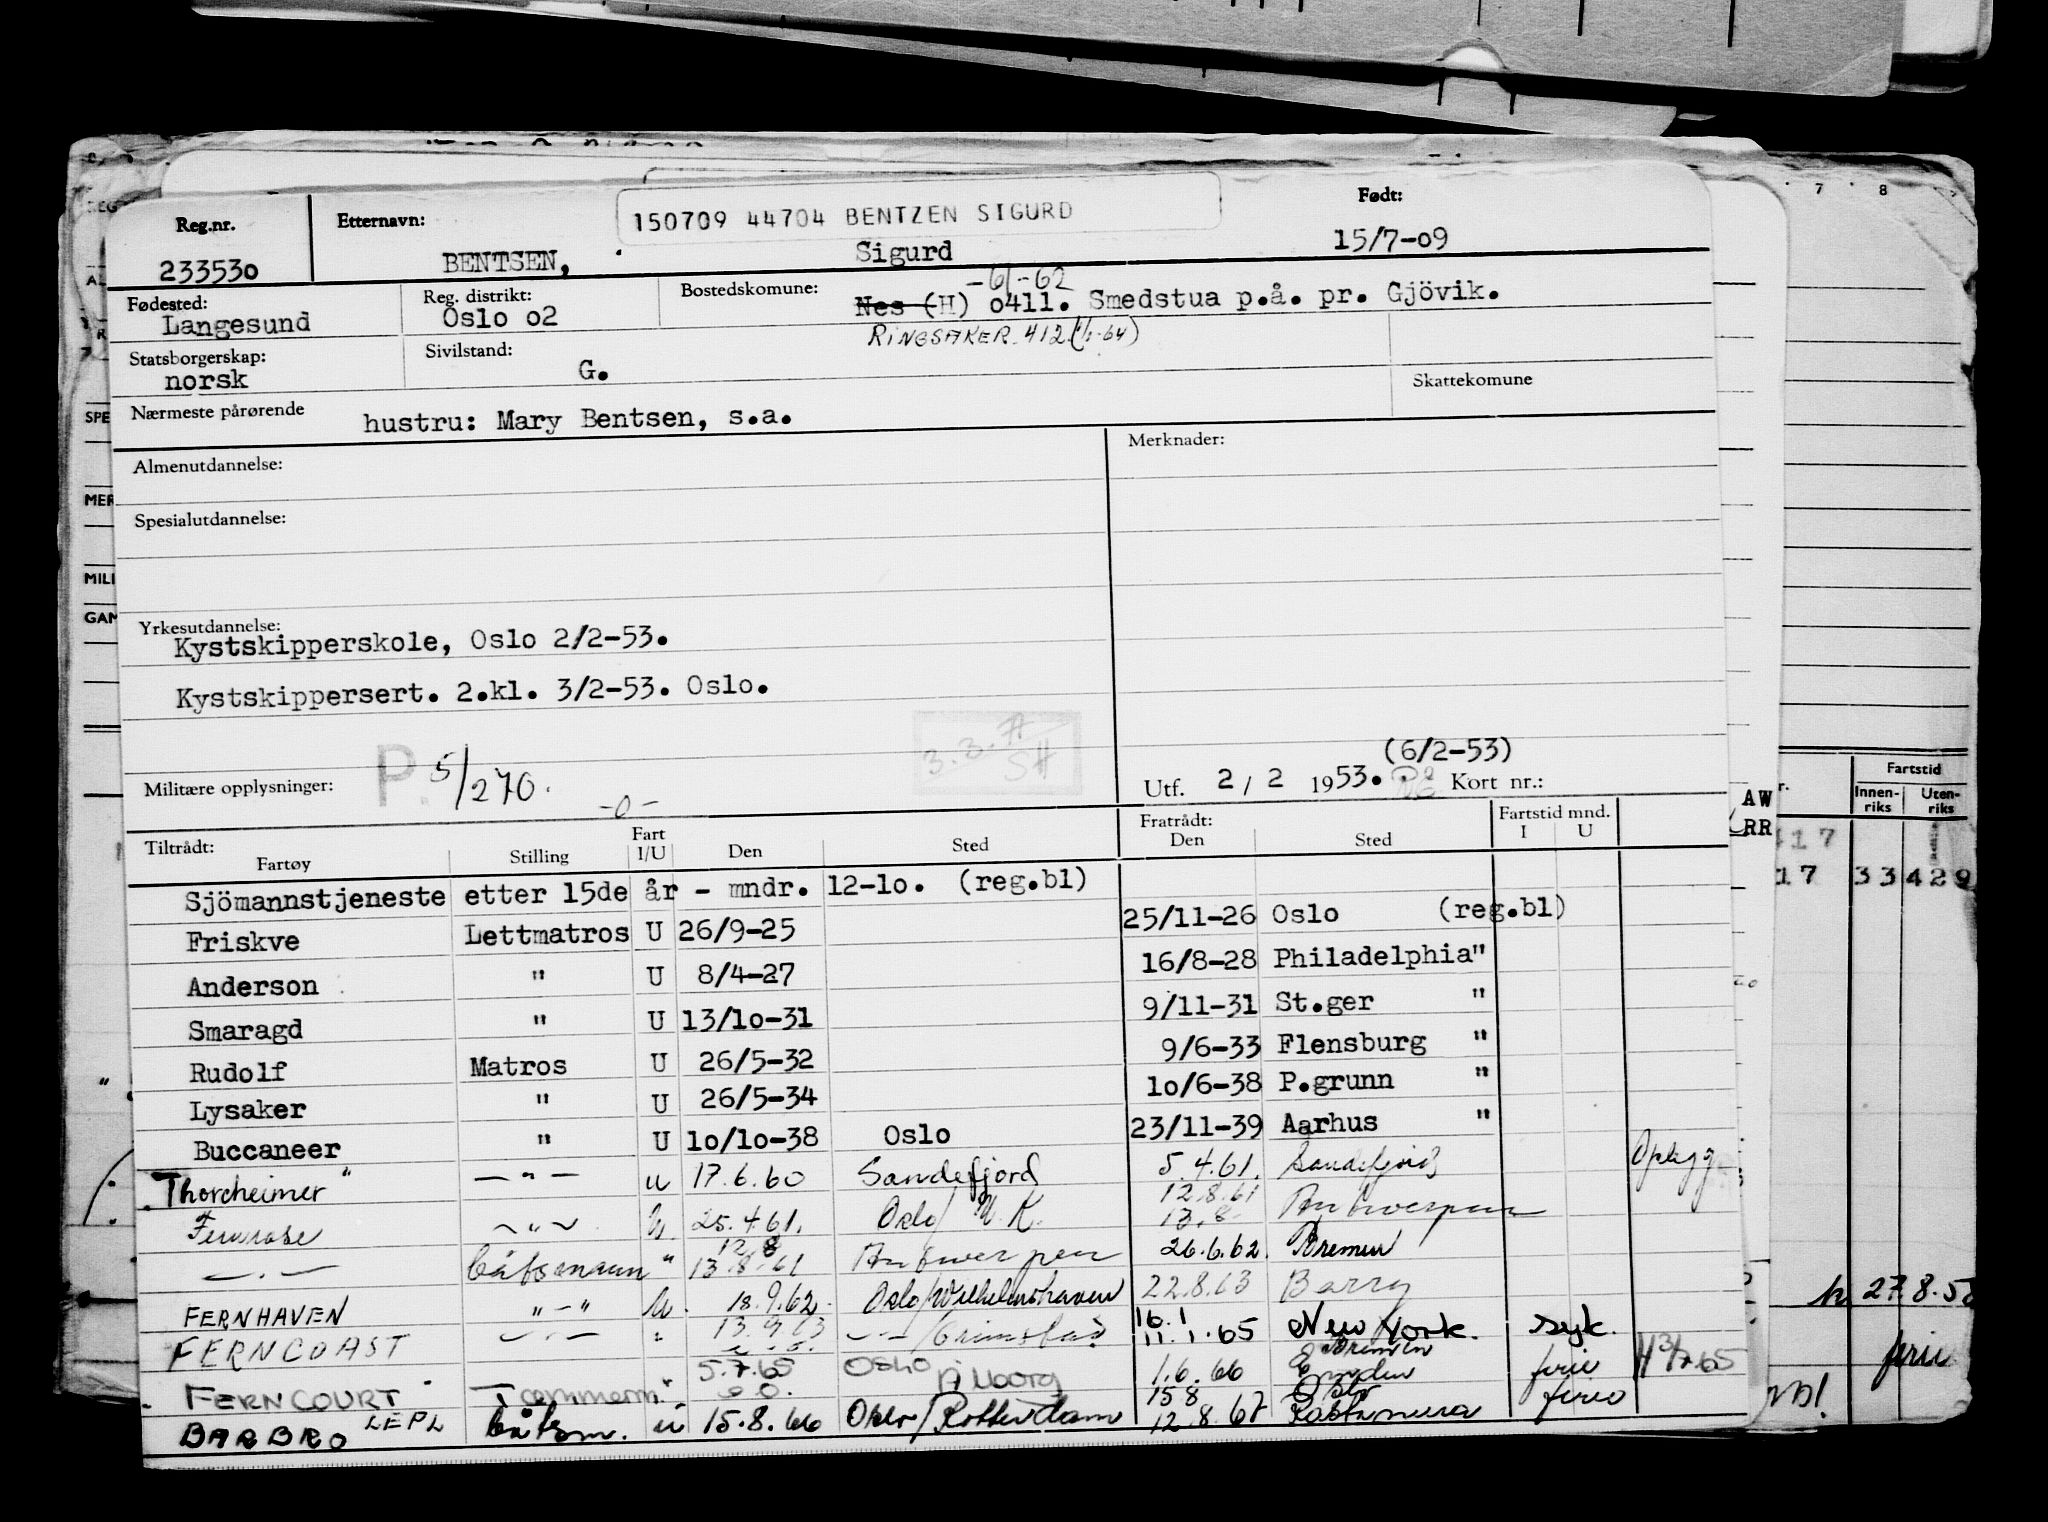 Reg.nr. Etternavn: 150709 44704 BENTZEN SIGURD Født:
233530 BENTSEN, Sigurd 15/7-09
-61-62
Fødested: Reg. distrikt: Bostedskomune: Nes (H) 0411. Smedstua p.å. pr. Gjövik.
Langesund Oslo 02
RINGSAKER. 412 (1/1-64)
Statsborgerskap: Sivilstand:
norsk G. Skattekomune
Nærmeste pårørende hustru: Mary Bentsen, s.a.
Almenutdannelse: Merknader:
Spesialutdannelse:
Yrkesutdannelse:
Kystskipperskole, Oslo 2/2-53.
Kystskippersert. 2.kl. 3/2-53. Oslo.
(6/2-53)
Militære opplysninger: P. 5/270. -0- Utf. 2 / 2 1953. Kort nr.:
Tiltrådt: Fart Fratrådt: Fartstid mnd.
Fartøy Stilling I/U Den Sted Den Sted I U
Sjömannstjeneste etter 15de år - mndr. 12-10. (reg.bl)
Friskve Lettmatros U 26/9-25 25/11-26 Oslo (reg.bl)
Anderson " U 8/4-27 16/8-28 Philadelphia "
Smaragd " U 13/10-31 9/11-31 St.ger "
Rudolf Matros U 26/5-32 9/6-33 Flensburg "
Lysaker " U 26/5-34 10/6-38 P.grunn "
Buccaneer " U 10/10-38 Oslo 23/11-39 Aarhus "
Thorcheimer — " — u 17.6.60 Sandefjord 5.4.61. Sandefjord Oplegg
Fernrose 25.4.61. Oslo/ 12.8.61 Antwerpen
båtsmann " 13.8.61 Antwerpen 26.6.62. Bremen
FERNHAVEN " - " U. 18.9.62. Oslo/Wilhelmshaven 22.8.63 Barry
FERNCOAST 13.9.63 Grimstad 11.1.65 New York. syk.
FERNCOURT Tømmerm. " 5.7.65 Oslo Ålborg 1.6.66 Emden ferie
BARBRO LEPL båtsm. u 15.8.66 Oslo/Rotterdam 12.8.67 ferie
7 8
Fartstid
Innenriks Utenriks
AW
RR
417
17 33 429
27.8.5
ferie